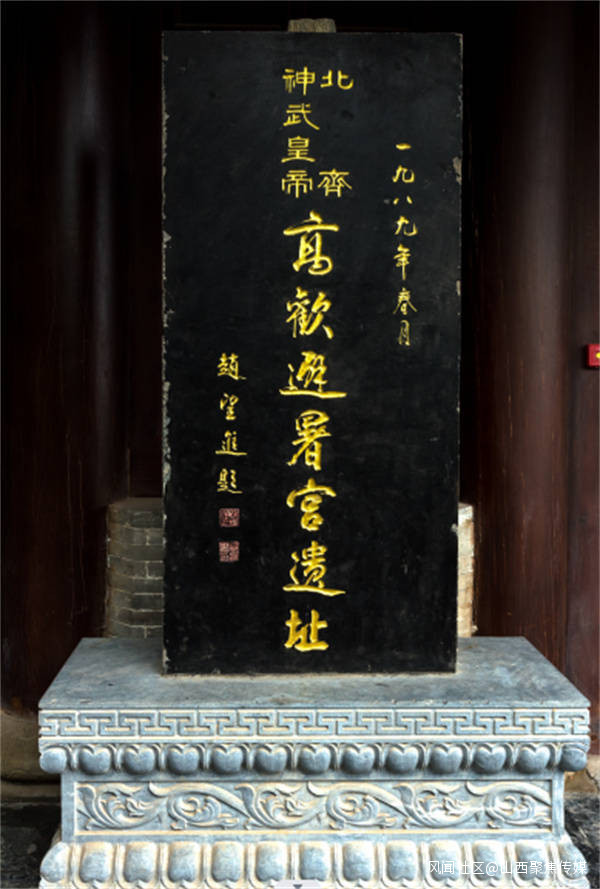 一九八九年春月
北齊
神武皇帝
高歡避暑宮遺址
趙望進題
风闻社区@山西聚焦传媒